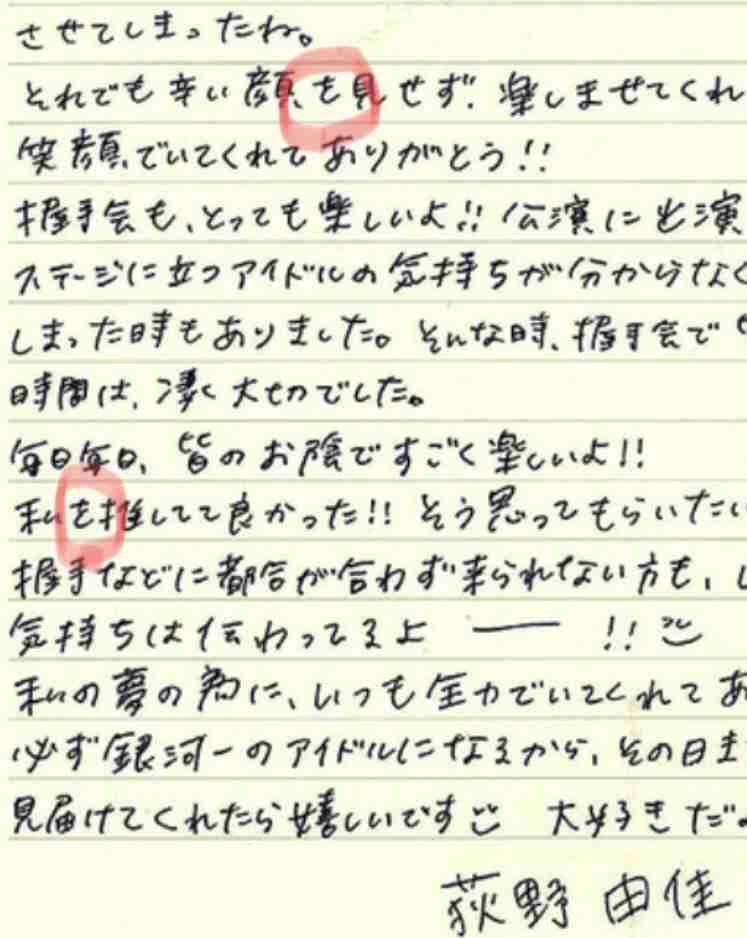 させてしまったね。
それでも辛い顔を見せず、楽しませてくれ
笑顔でいてくれてありがとう!!
握手会も、とっても楽しいよ!! 公演に出演
ステージに立つアイドルの気持ちが分からなく
しまった時もありました。そんな時、握手会で
時間は、凄く大切でした。
毎日毎日、皆のお陰ですごく楽しいよ!!
私を推してて良かった!! そう思ってもらいたい
握手などに都合が合わず来られない方も、
気持ちは伝わってるよ ー !!
私の夢の為に、いつも全力でいてくれてあ
必ず銀河一のアイドルになるから、その日ま
見届けてくれたら嬉しいです 大好きだ
荻野 由佳